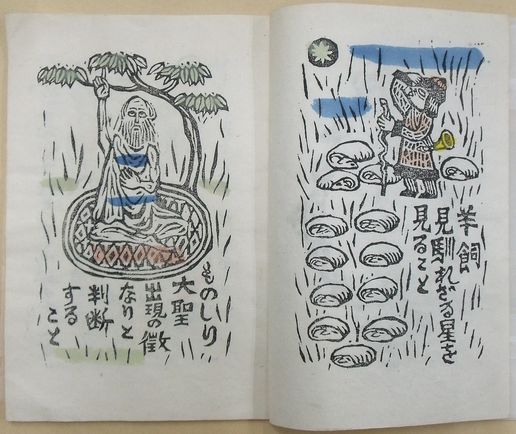 羊飼
見馴れざる星を
見ること
ものしり
大聖
出現の徴
なりと
判断
する
こと